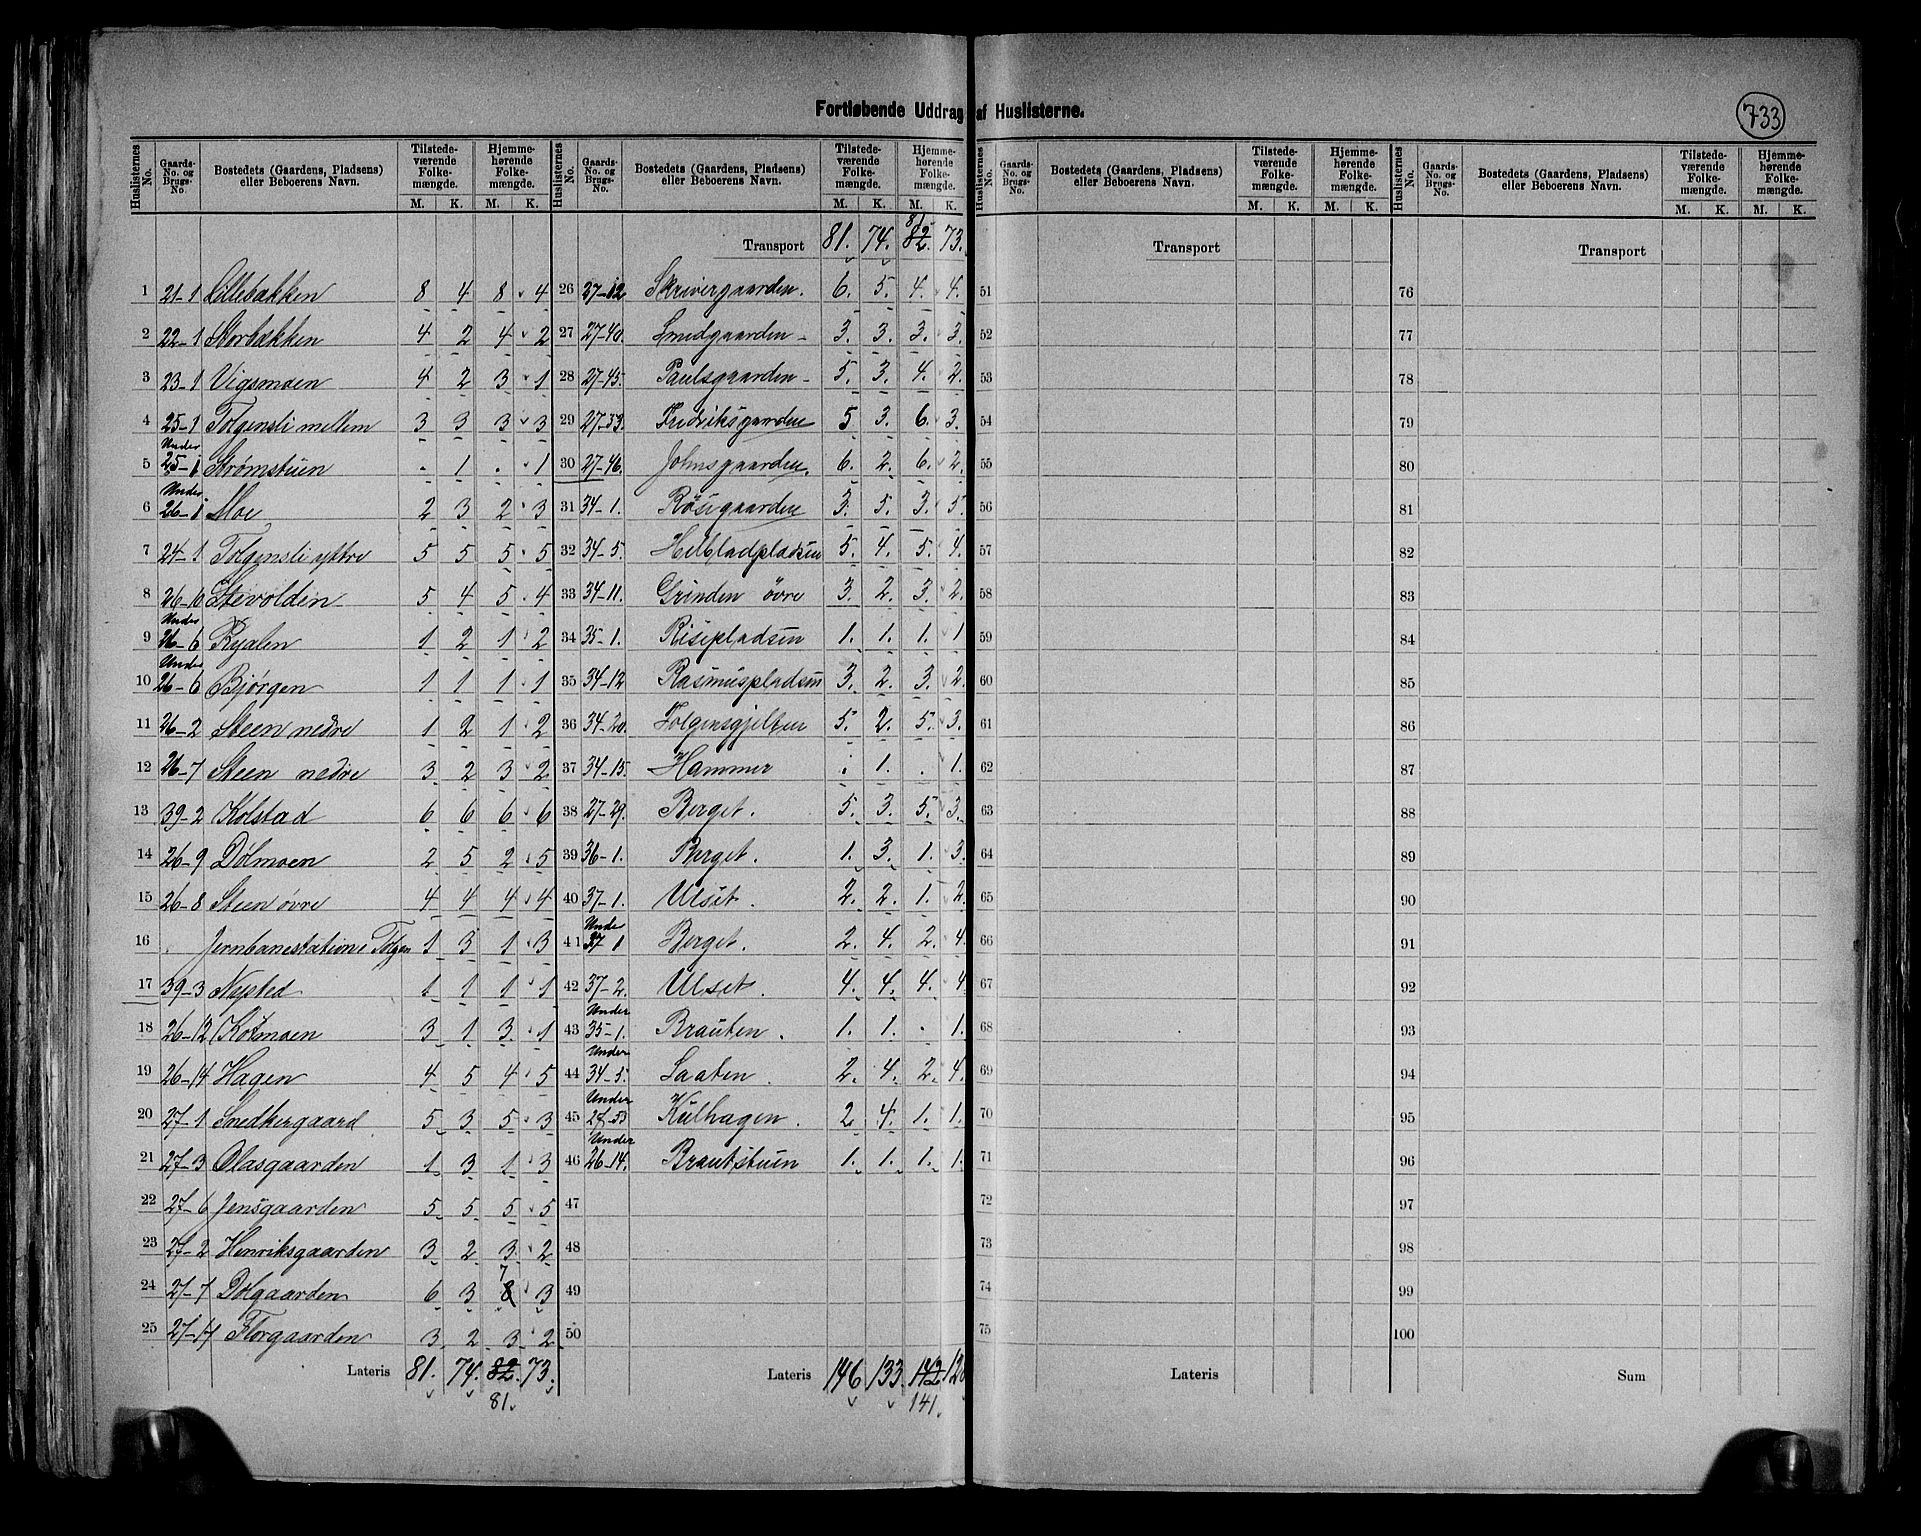 Fortløbende Uddrag af Huslisterne.
733
Huslisternes No. | Gaards-No. og Brugs-No. | Bostedets (Gaardens, Pladsens) eller Beboerens Navn. | Tilstedeværende Folkemængde. M. K. | Hjemmehørende Folkemængde. M. K.
1 21-1 Lillebakken 8 4 8 4
2 22-1 Storbakken 4 2 4 2
3 23-1 Vigsmoen 4 2 3 1
4 25-1 Tolgensli mellem 3 3 3 3
5 Under 25-1 Strømstuen . 1 . 1
6 Under 26-1 Moe 2 3 2 3
7 24-1 Tolgensli ytre 5 5 5 5
8 26-10 Stevolden 5 4 5 4
9 Under 26-6 Ryalen 1 2 1 2
10 Under 26-6 Bjørgen 1 1 1 1
11 26-2 Steen nedre 1 2 1 2
12 26-7 Steen nedre 3 2 3 2
13 39-2 Kolstad 6 6 6 6
14 26-9 Dølmoen 2 5 2 5
15 26-8 Steen øvre 4 4 4 4
16 Jernbanestationen Tolgen 1 3 1 3
17 39-3 Nysted 1 1 1 1
18 26-12 Kotmoen 3 1 3 1
19 26-14 Hagen 4 5 4 5
20 27-1 Snedkergaard 5 3 5 3
21 27-3 Olasgaarden 1 3 1 3
22 27-6 Jensgaarden 5 5 5 5
23 27-2 Henriksgaarden 3 2 3 2
24 27-7 Dølgaarden 6 3 8 7 3
25 27-17 Florgaarden 3 2 3 2
Lateris 81. 74. 82. 73.
81.
Huslisternes No. | Gaards-No. og Brugs-No. | Bostedets (Gaardens, Pladsens) eller Beboerens Navn. | Tilstedeværende Folkemængde. M. K. | Hjemmehørende Folkemængde. M. K.
Transport 81. 74. 82. 81 73.
26 27-12 Skrivergaarden. 6. 5. 4. 4.
27 27-40. Smedgaarden 3. 3. 3. 3.
28 27-45. Paulsgaarden 5. 3. 4. 2.
29 27-33. Fredriksgaarden 5 3. 6. 3.
30 27-46. Johnsgaarden. 6. 2. 6. 2.
31 34-1. Røsegaarden 3. 5. 3. 5.
32 34-5. Helbladpladsen 5. 4. 5. 4.
33 34-11. Grinden øvre 3. 2. 3. 2.
34 35-1. Risepladsen 1. 1. 1. 1
35 34-12 Rasmuspladsen 3. 2. 3. 2.
36 34-20. Tolgensgjelten 5. 2. 5. 3.
37 34-15. Hammer . 1. . 1.
38 27-29. Berget. 5. 3. 5. 3.
39 36-1. Berget. 1. 3. 1. 3.
40 37-1. Ulset. 2. 2. 1. 2.
41 Under 37 1 Berget. 2. 4. 2. 4.
42 37-2. Ulset. 4. 4. 4. 4
43 Under 35-1. Brauten. 1. 1. . 1.
44 Under 34-5. Saaten. 2. 4. 2. 4.
45 Under 27-53 Kulhagen. 2 4. 1. 1.
46 Under 26-14. Brautstuen 1. 1. 1. 1.
47
48
49
50
Lateris 146 133. 142
141.
Huslisternes No. | Gaards-No. og Brugs-No. | Bostedets (Gaardens, Pladsens) eller Beboerens Navn. | Tilstedeværende Folkemængde. M. K. | Hjemmehørende Folkemængde. M. K.
Transport
51
52
53
54
55
56
57
58
59
60
61
62
63
64
65
66
67
68
69
70
71
72
73
74
75
Lateris
Huslisternes No. | Gaards-No. og Brugs-No. | Bostedets (Gaardens, Pladsens) eller Beboerens Navn. | Tilstedeværende Folkemængde. M. K. | Hjemmehørende Folkemængde. M. K.
Transport
76
77
78
79
80
81
82
83
84
85
86
87
88
89
90
91
92
93
94
95
96
97
98
99
100
Sum